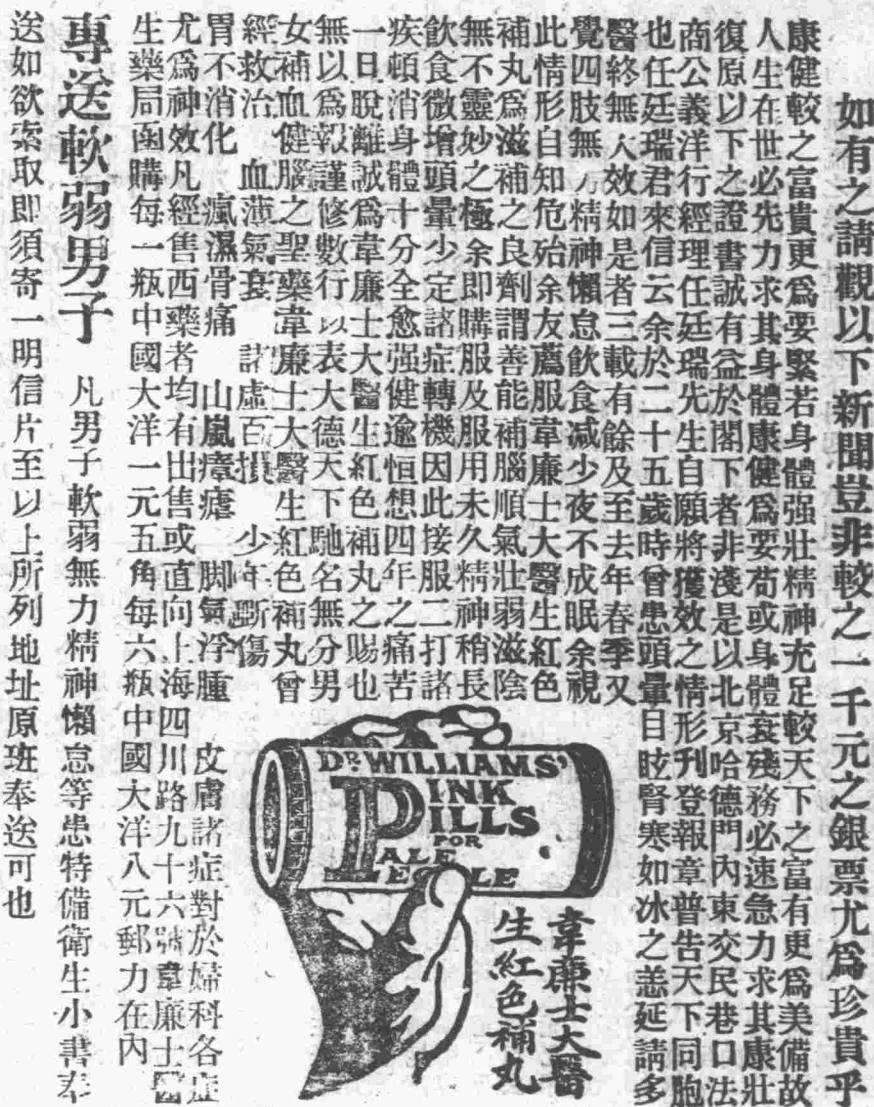 如有之請觀以下新聞豈非較之一千元之銀票尤爲珍貴乎
康健較之富貴更爲要緊若身體强壯精神充足較天下之富有更爲美備故
人生在世必先力求其身體康健爲要苟或身體衰殘務必速急力求其康壯
復原以下之證書誠有益於閣下者非淺是以北京哈德門內東交民巷口法
商公義洋行經理任廷瑞先生自願將獲效之情形刊登報章普告天下同胞
也任廷瑞君來信云余於二十五歲時曾患頭暈目眩腎寒如冰之恙延請多
醫終無大效如是者三載有餘及至去年春季又
覺四肢無力精神懶怠飲食減少夜不成眠余視
此情形自知危殆余友薦服韋廉士大醫生紅色
補丸爲滋補之良劑謂善能補腦順氣壯弱滋陰
無不靈妙之極余即購服及服用未久精神稍長
飲食微增頭暈少定諸症轉機因此接服二打諸
疾頓消身體十分全愈强健逾恒想四年之痛苦
一日脫離誠爲韋廉士大醫生紅色補丸之賜也
無以爲報謹修數行以表大德天下馳名無分男
女補血健腦之聖藥韋廉士大醫生紅色補丸曾
經救治 血薄氣衰 諸虛百損 少年斷傷
胃不消化 瘋濕骨痛 山嵐瘴瘧 脚氣浮腫 皮膚諸症對於婦科各症
尤爲神效凡經售西藥者均有出售或直向上海四川路九十六號韋廉士醫
生藥局函購每一瓶中國大洋一元五角每六瓶中國大洋八元郵力在內
專送軟弱男子 凡男子軟弱無力精神懶怠等患特備衛生小書奉
送如欲索取即須寄一明信片至以上所列地址原班奉送可也
DR. WILLIAMS'
PINK
PILLS
FOR
PALE
PEOPLE
韋廉士大醫
生紅色補丸